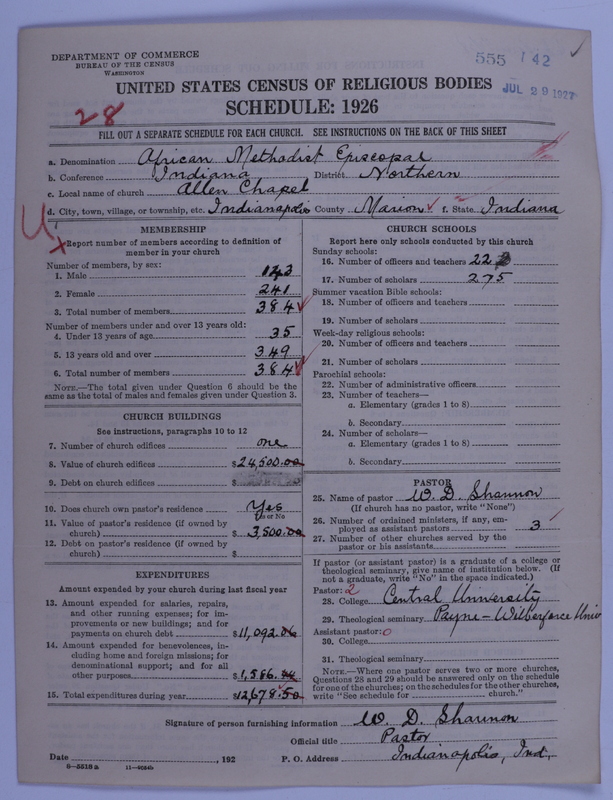 DEPARTMENT OF COMMERCE
BUREAU OF THE CENSUS
WASHINGTON
555 142
JUL 29 1927
UNITED STATES CENSUS OF RELIGIOUS BODIES
SCHEDULE: 1926
28
FILL OUT A SEPARATE SCHEDULE FOR EACH CHURCH. SEE INSTRUCTIONS ON THE BACK OF THIS SHEET
a. Denomination African Methodist Episcopal
b. Conference Indiana District Northern
c. Local name of church Allen Chapel
d. City, town, village, or township, etc. Indianapolis County Marion f. State Indiana
U
MEMBERSHIP
Report number of members according to definition of member in your church
Number of members, by sex:
1. Male 143
2. Female 241
3. Total number of members 384
Number of members under and over 13 years old:
4. Under 13 years of age 35
5. 13 years old and over 349
6. Total number of members 384
NOTE.—The total given under Question 6 should be the
same as the total of males and females given under Question 3.
CHURCH BUILDINGS
See instructions, paragraphs 10 to 12
7. Number of church edifices one
8. Value of church edifices $24,500.00
9. Debt on church edifices $
10. Does church own pastor's residence Yes
Yes or No
11. Value of pastor's residence (if owned by
church) $3,500.00
12. Debt on pastor's residence (if owned by
church) $
EXPENDITURES
Amount expended by your church during last fiscal year
13. Amount expended for salaries, repairs,
and other running expenses; for im-
provements or new buildings; and for
payments on church debt $11,092.06
14. Amount expended for benevolences, in-
cluding home and foreign missions; for
denominational support; and for all
other purposes $1,586.44
15. Total expenditures during year $12,678.50
CHURCH SCHOOLS
Report here only schools conducted by this church
Sunday schools:
16. Number of officers and teachers 22
17. Number of scholars 275
Summer vacation Bible schools:
18. Number of officers and teachers
19. Number of scholars
Week-day religious schools:
20. Number of officers and teachers
21. Number of scholars
Parochial schools:
22. Number of administrative officers
23. Number of teachers—
a. Elementary (grades 1 to 8)
b. Secondary
24. Number of scholars—
a. Elementary (grades 1 to 8)
b. Secondary
PASTOR
25. Name of pastor W. D. Shannon
(If church has no pastor, write "None")
26. Number of ordained ministers, if any, em-
ployed as assistant pastors 3
27. Number of other churches served by the
pastor or his assistants
If pastor (or assistant pastor) is a graduate of a college or
theological seminary, give name of institution below. (If
not a graduate, write "No" in the space indicated.)
Pastor: 2
28. College Central University
29. Theological seminary Payne-Wilberforce Univ
Assistant pastor: 0
30. College
31. Theological seminary
NOTE.—Where one pastor serves two or more churches,
Questions 28 and 29 should be answered only on the schedule
for one of the churches; on the schedules for the other churches,
write "See schedule for church."
Signature of person furnishing information W. D. Shannon
Official title Pastor
Date , 192 P. O. Address Indianapolis, Ind.
8-5518a 11-9024b